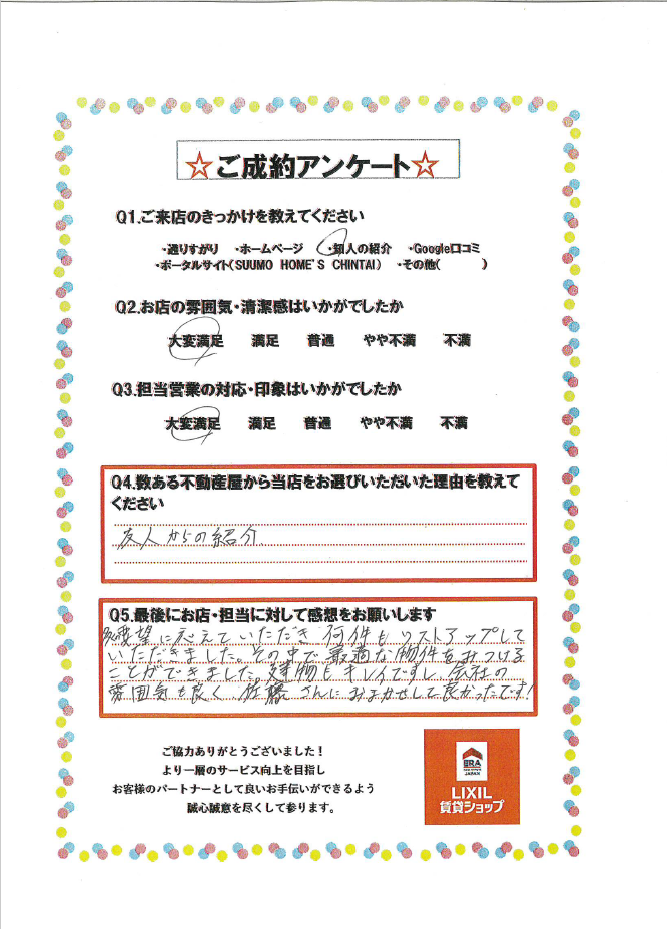 ☆ご成約アンケート☆
Q1.ご来店のきっかけを教えてください
・通りすがり ・ホームページ ・知人の紹介 ・Google口コミ
・ポータルサイト(SUUMO HOME'S CHINTAI) ・その他( )
Q2.お店の雰囲気・清潔感はいかがでしたか
大変満足 満足 普通 やや不満 不満
Q3.担当営業の対応・印象はいかがでしたか
大変満足 満足 普通 やや不満 不満
Q4.数ある不動産屋から当店をお選びいただいた理由を教えて
ください
友人からの紹介
Q5.最後にお店・担当に対して感想をお願いします
望に応えていただき、何件もリストアップして
いただきました。その中で最適な物件をみつける
ことができました。建物もキレイですし、会社の
雰囲気も良く、佐藤さんにおまかせして良かったです!
ご協力ありがとうございました!
より一層のサービス向上を目指し
お客様のパートナーとして良いお手伝いができるよう
誠心誠意を尽くして参ります。
ERA
JAPAN
LIXIL
賃貸ショップ